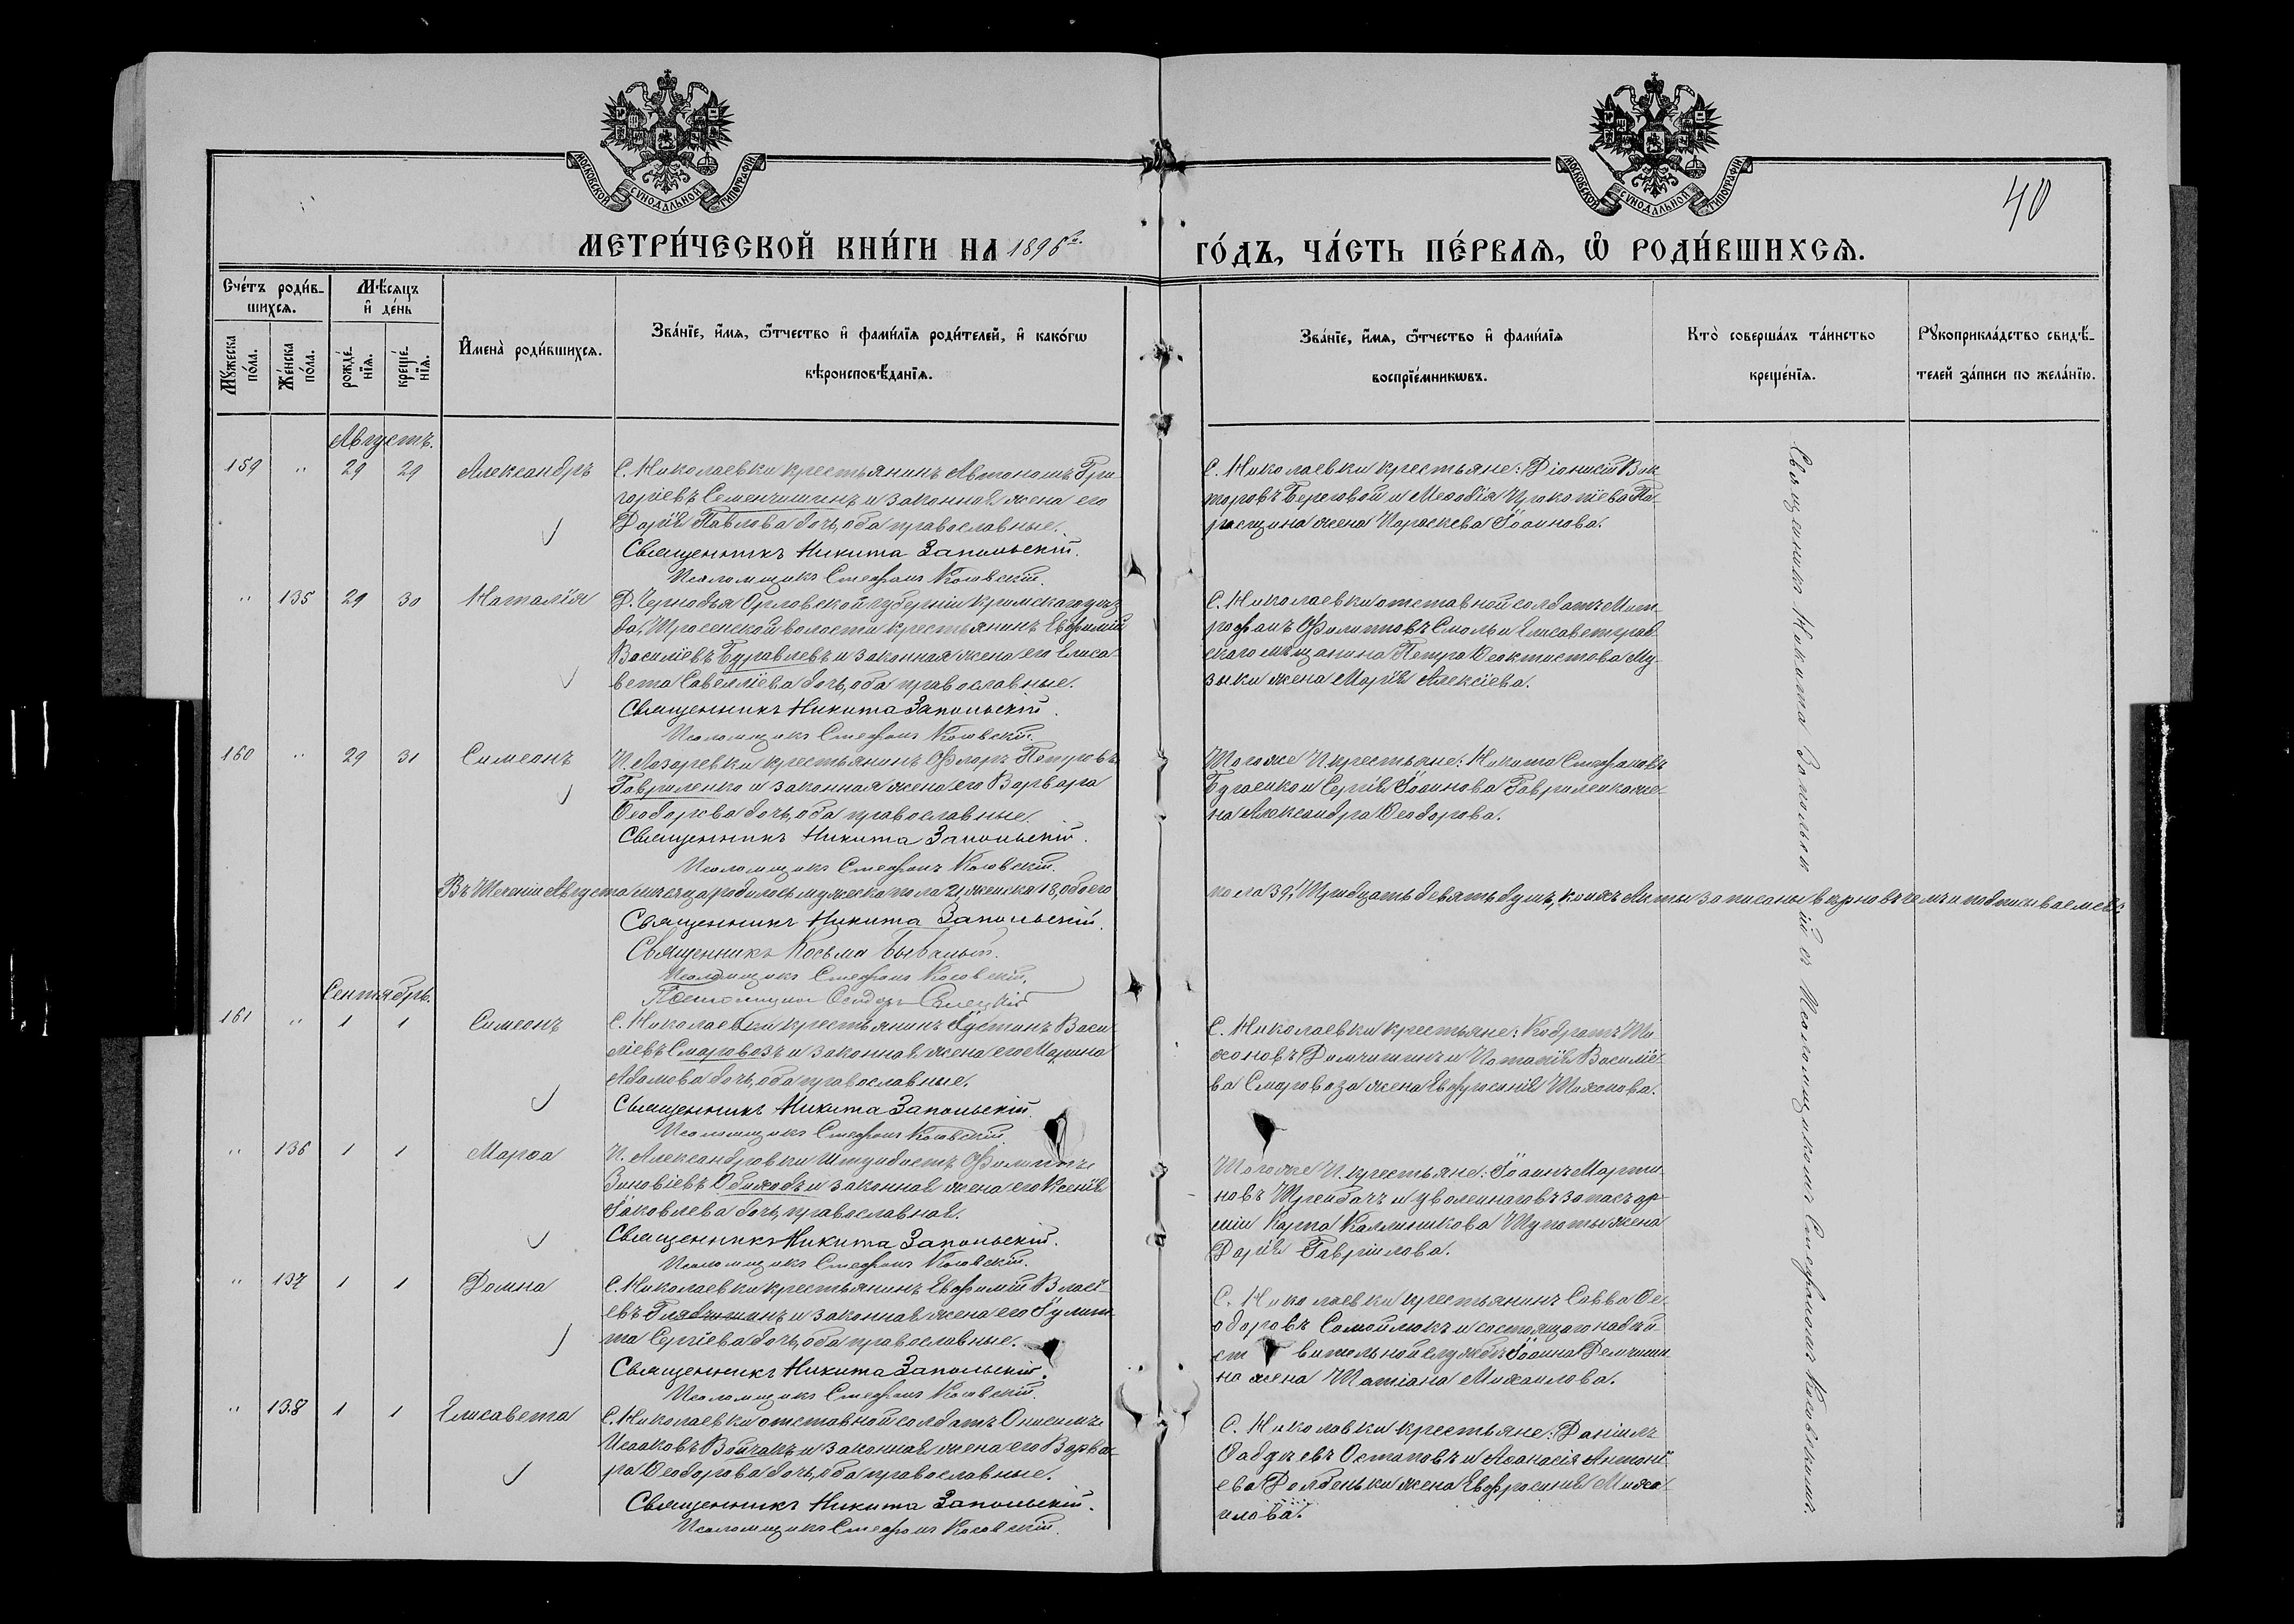 МОСКОВСКОЙ СѴНОДАЛЬНОЙ ТИПОГРАФІИ
МОСКОВСКОЙ СѴНОДАЛЬНОЙ ТИПОГРАФІИ
40
МЕТРИ́ЧЕСКОЙ КНИ́ГИ НА 1896 г.
ГО́ДЪ, ЧА́СТЬ ПЕ́РВАѦ, Ѡ҆ РОДИ́ВШИХСѦ.
Сче́тъ роди́в-
шихсѧ.
Мѣ́сѧцъ
и҆ де́нь
Мꙋ́жеска
по́ла.
Же́нска
по́ла.
рожде́-
нїѧ.
креще́-
нїѧ.
И҆мена̀ роди́вшихсѧ.
Зва́нїе, и҆́мѧ, ѻ҆́тчество и҆ фами́лїѧ роди́телей, и҆ како́гѡ
вѣроисповѣ́данїѧ.
Зва́нїе, и҆́мѧ, ѻ҆́тчество и҆ фами́лїѧ
воспрїе́мникѡвъ.
Кто̀ соверша́лъ та́инство
креще́нїѧ.
Рꙋкоприкла́дство свидѣ́-
телей за́писи по жела́нїю.
Августъ.
159 " 29 29 Александръ
С. Николаевки крестьянинъ Автономъ Гри-
горіевъ Семенчишинъ и законная жена его
Дарія Павлова дочь, оба православные.
Священникъ Никита Запольскій.
Псаломщикъ Стефанъ Косовскій.
С. Николаевки крестьяне: Діонисій Вик-
торовъ Береговой и Меѳодія Прокопіева Па-
расщина жена Параскева Іоаннова.
" 135 29 30 Наталія
Д. Чернодья Орловской губерніи Кромскаго уѣз-
да, волости крестьянинъ Евфимій
Василіевъ Буравлевъ и законная жена его Елиса-
вета Савелліева дочь, оба православные.
Священникъ Никита Запольскій.
Псаломщикъ Стефанъ Косовскій.
С. Николаевки отставной солдатъ Мит-
рофанъ Филипповъ Смолы и Елисаветград-
скаго мѣщанина Петра Ѳеоктистова Му-
зыки жена Марія Алексіева.
160 " 29 31 Симеонъ
П. Лазаревки крестьянинъ Флоръ Петровъ
Гавриленко и законная жена его Варвара
Ѳеодорова дочь, оба православные.
Священникъ Никита Запольскій.
Псаломщикъ Стефанъ Косовскій.
Того же П. крестьяне: Никита Стефановъ
Бугаенко и Сергія Іоаннова Гавриленка же-
на Александра Ѳеодорова.
Въ теченіи Августа мѣсяца родилось мужеска пола 21, женска 18, обоего
пола 39, тридцать девять душъ, коихъ акты записаны вѣрно въ чемъ и подписываемся:
Священникъ Никита Запольскій.
Священникъ Косьма Бывалый.
Псаломщикъ Стефанъ Косовскій.
Псаломщикъ Ѳеодоръ
Сентябрь.
161 " 1 1 Симеонъ
С. Николаевки крестьянинъ Іустинъ Васи-
ліевъ Смаровозъ и законная жена его Марина
Адамова дочь, оба православные.
Священникъ Никита Запольскій.
Псаломщикъ Стефанъ Косовскій.
С. Николаевки крестьяне: Кодратъ Ти-
хоновъ Демчишинъ и Потапія Василіе-
ва Смаровоза жена Евфросинія Тихонова.
" 136 1 1 Марѳа
П. Александровки штундистъ Филиппъ
Зиновіевъ Обиходъ и законная жена его Ксенія
Іаковлева дочь, православная.
Священникъ Никита Запольскій.
Псаломщикъ Стефанъ Косовскій.
Того же П. крестьяне: Іоаннъ Марти-
новъ Трейбачъ и уволеннаго въ запасъ ар-
міи Карпа Каллиникова Шупоты жена
Дарія Гавріилова.
" 137 1 1 Домна
С. Николаевки крестьянинъ Евфимій Власі-
евъ и законная жена его Іулит-
та Сергіева дочь, оба православные.
Священникъ Никита Запольскій.
Псаломщикъ Стефанъ Косовскій.
С. Николаевки крестьянинъ Савва Ѳе-
одоровъ Самойлюкъ и состоящаго на дѣй-
ст вительной службѣ Іоанна Демчиши-
на жена Татіана Михаилова.
" 138 1 1 Елисавета
С. Николаевки отставной солдатъ Онисимъ
Исааковъ Войчакъ и законная жена его Варва-
ра Ѳеодорова дочь, оба православные.
Священникъ Никита Запольскій.
Псаломщикъ Стефанъ Косовскій.
С. Николаевки крестьяне: Даніилъ
Ѳаддеевъ Остаповъ и Аѳанасія Антоні-
ева Долбеньки жена Евфросинія Миха-
илова.
Священникъ Никита Запольскій съ Псаломщикомъ Стефаномъ Косовскимъ.